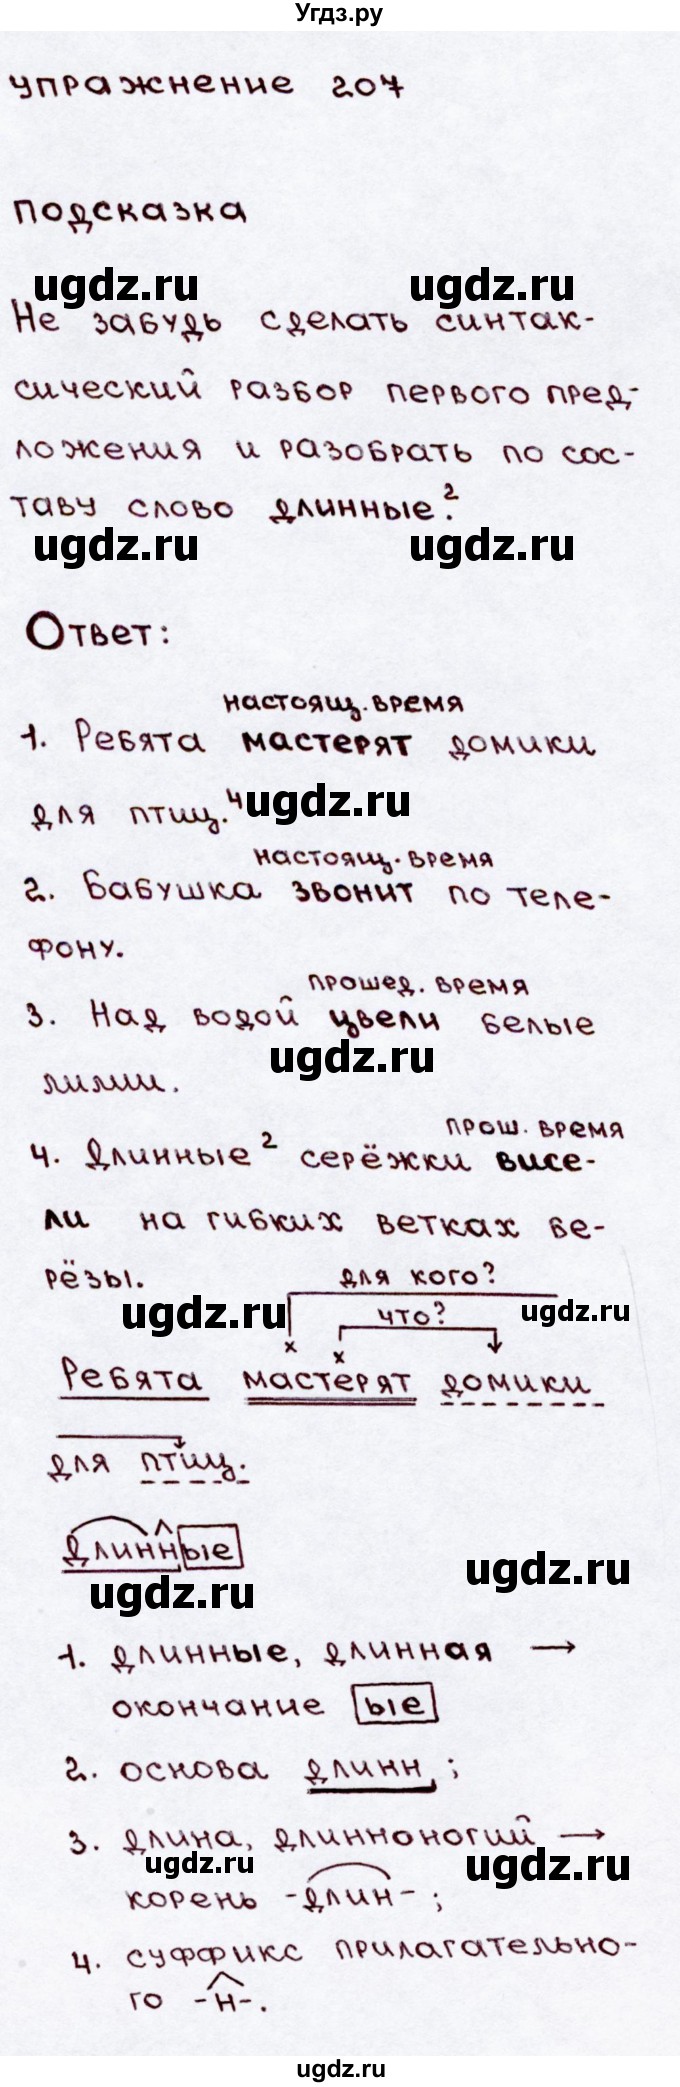 Угдз.ру
упражнение 207
подсказка
ugdz.ru ugdz.ru
Не забудь сделать синтак-
сический разбор первого пред-
ложения и разобрать по сос-
таву слово длинные².
ugdz.ru ugdz.ru
Ответ:
настоящ. время
1. Ребята мастерят домики
для птиц.⁴ ugdz.ru
настоящ. время
2. Бабушка звонит по теле-
фону.
прошед. время
3. Над водой цвели белые
ugdz.ru
лилии.
прош. время
4. Длинные² серёжки висе-
ли на гибких ветках бе-
рёзы.
для кого?
ugdz.ru что? ugdz.ru
х х
Ребята мастерят домики
для птиц.
длинные
ugdz.ru ugdz.ru
1. длинные, длинная →
окончание ые
2. основа длинн;
3. длина, длинноногий →
ugdz.ru ugdz.ru
корень -длин-;
4. суффикс прилагательно-
го -н-.
ugdz.ru